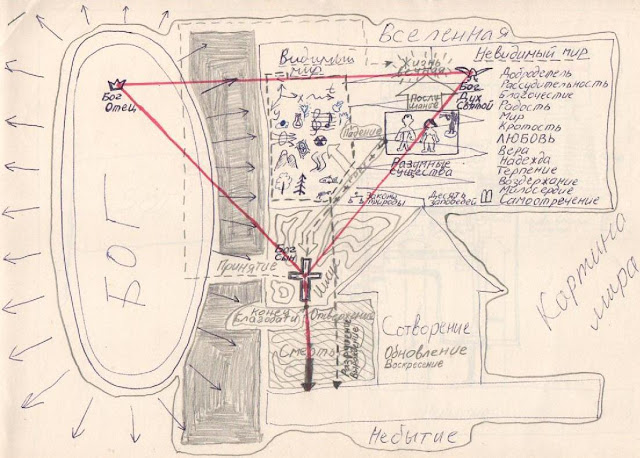 Вселенная
Невидимый мир
Видимый
мир
Жизнь
Бог
Отец
Бог
Дух
Святой
Добродетель
Рассудительность
Благочестие
Радость
Мир
Кротость
ЛЮБОВЬ
Вера
Надежда
Терпение
Воздержание
Милосердие
Самоотречение
Послу
шание
Падение
Разумные
существа
Законы
природы
Десять
заповедей
БОГ
Бог
Сын
Принятие
Конец
благодати
Отвержение
Смерть
Разрушение
Вырождение
Сотворение
Обновление
Воскресение
Картина
мира
Небытие